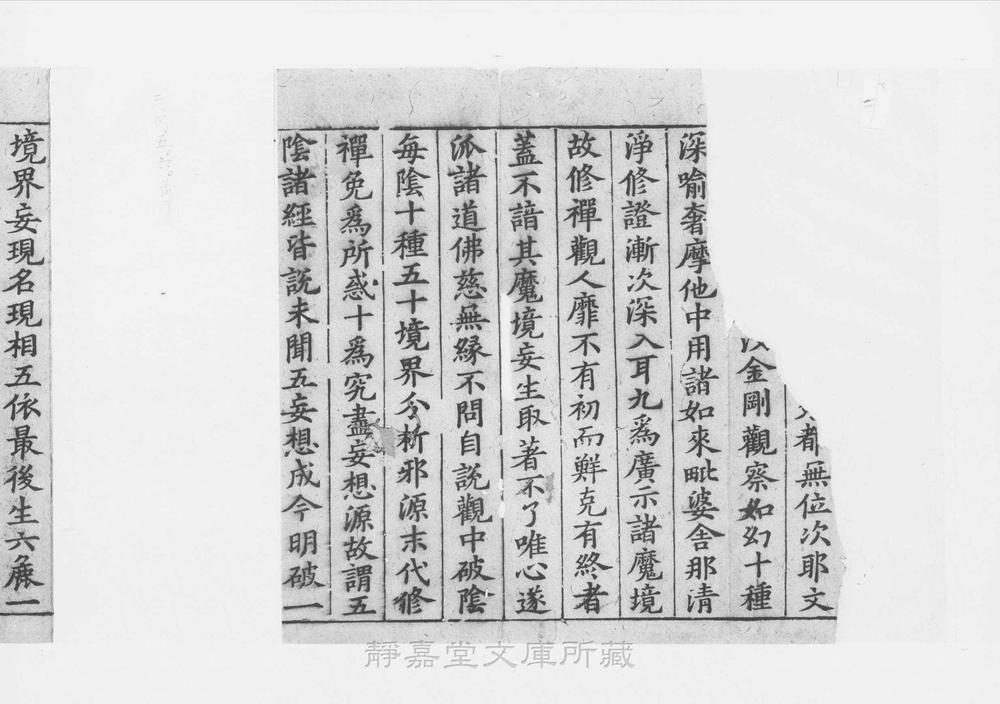 都無位次耶文
金剛觀察如幻十種
深喻奢摩他中用諸如來毗婆舍那清
淨修證漸次深入耳九爲廣示諸魔境
故修禪觀人靡不有初而鮮克有終者
蓋不諳其魔境妄生取著不了唯心遂
派諸道佛慈無緣不問自說觀中破陰
每陰十種五十境界分析邪源末代修
禪免爲所惑十爲究盡妄想源故謂五
陰諸經皆說未聞五妄想成今明破一
境界妄現名現相五依最後生六麁一
靜嘉堂文庫所藏